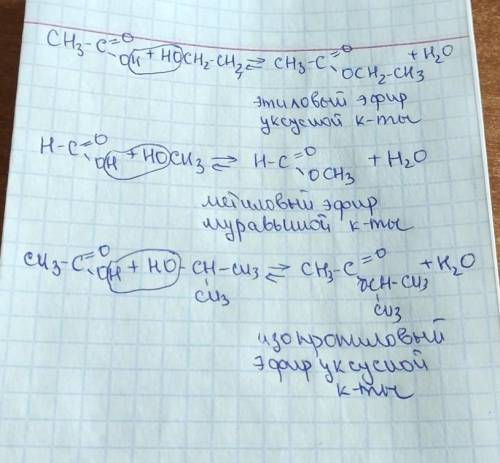 CH₃-C=O OH + HOCH₂-CH₃ ⇄ CH₃-C=O OCH₂-CH₃ + H₂O
этиловый эфир
уксусной к-ты
H-C=O OH + HOCH₃ ⇄ H-C=O OCH₃ + H₂O
метиловый эфир
муравьиной к-ты
CH₃-C=O OH + HO-CH-CH₃ ⇄ CH₃-C=O OCH-CH₃ + H₂O
CH₃ CH₃
изопропиловый
эфир уксусной
к-ты